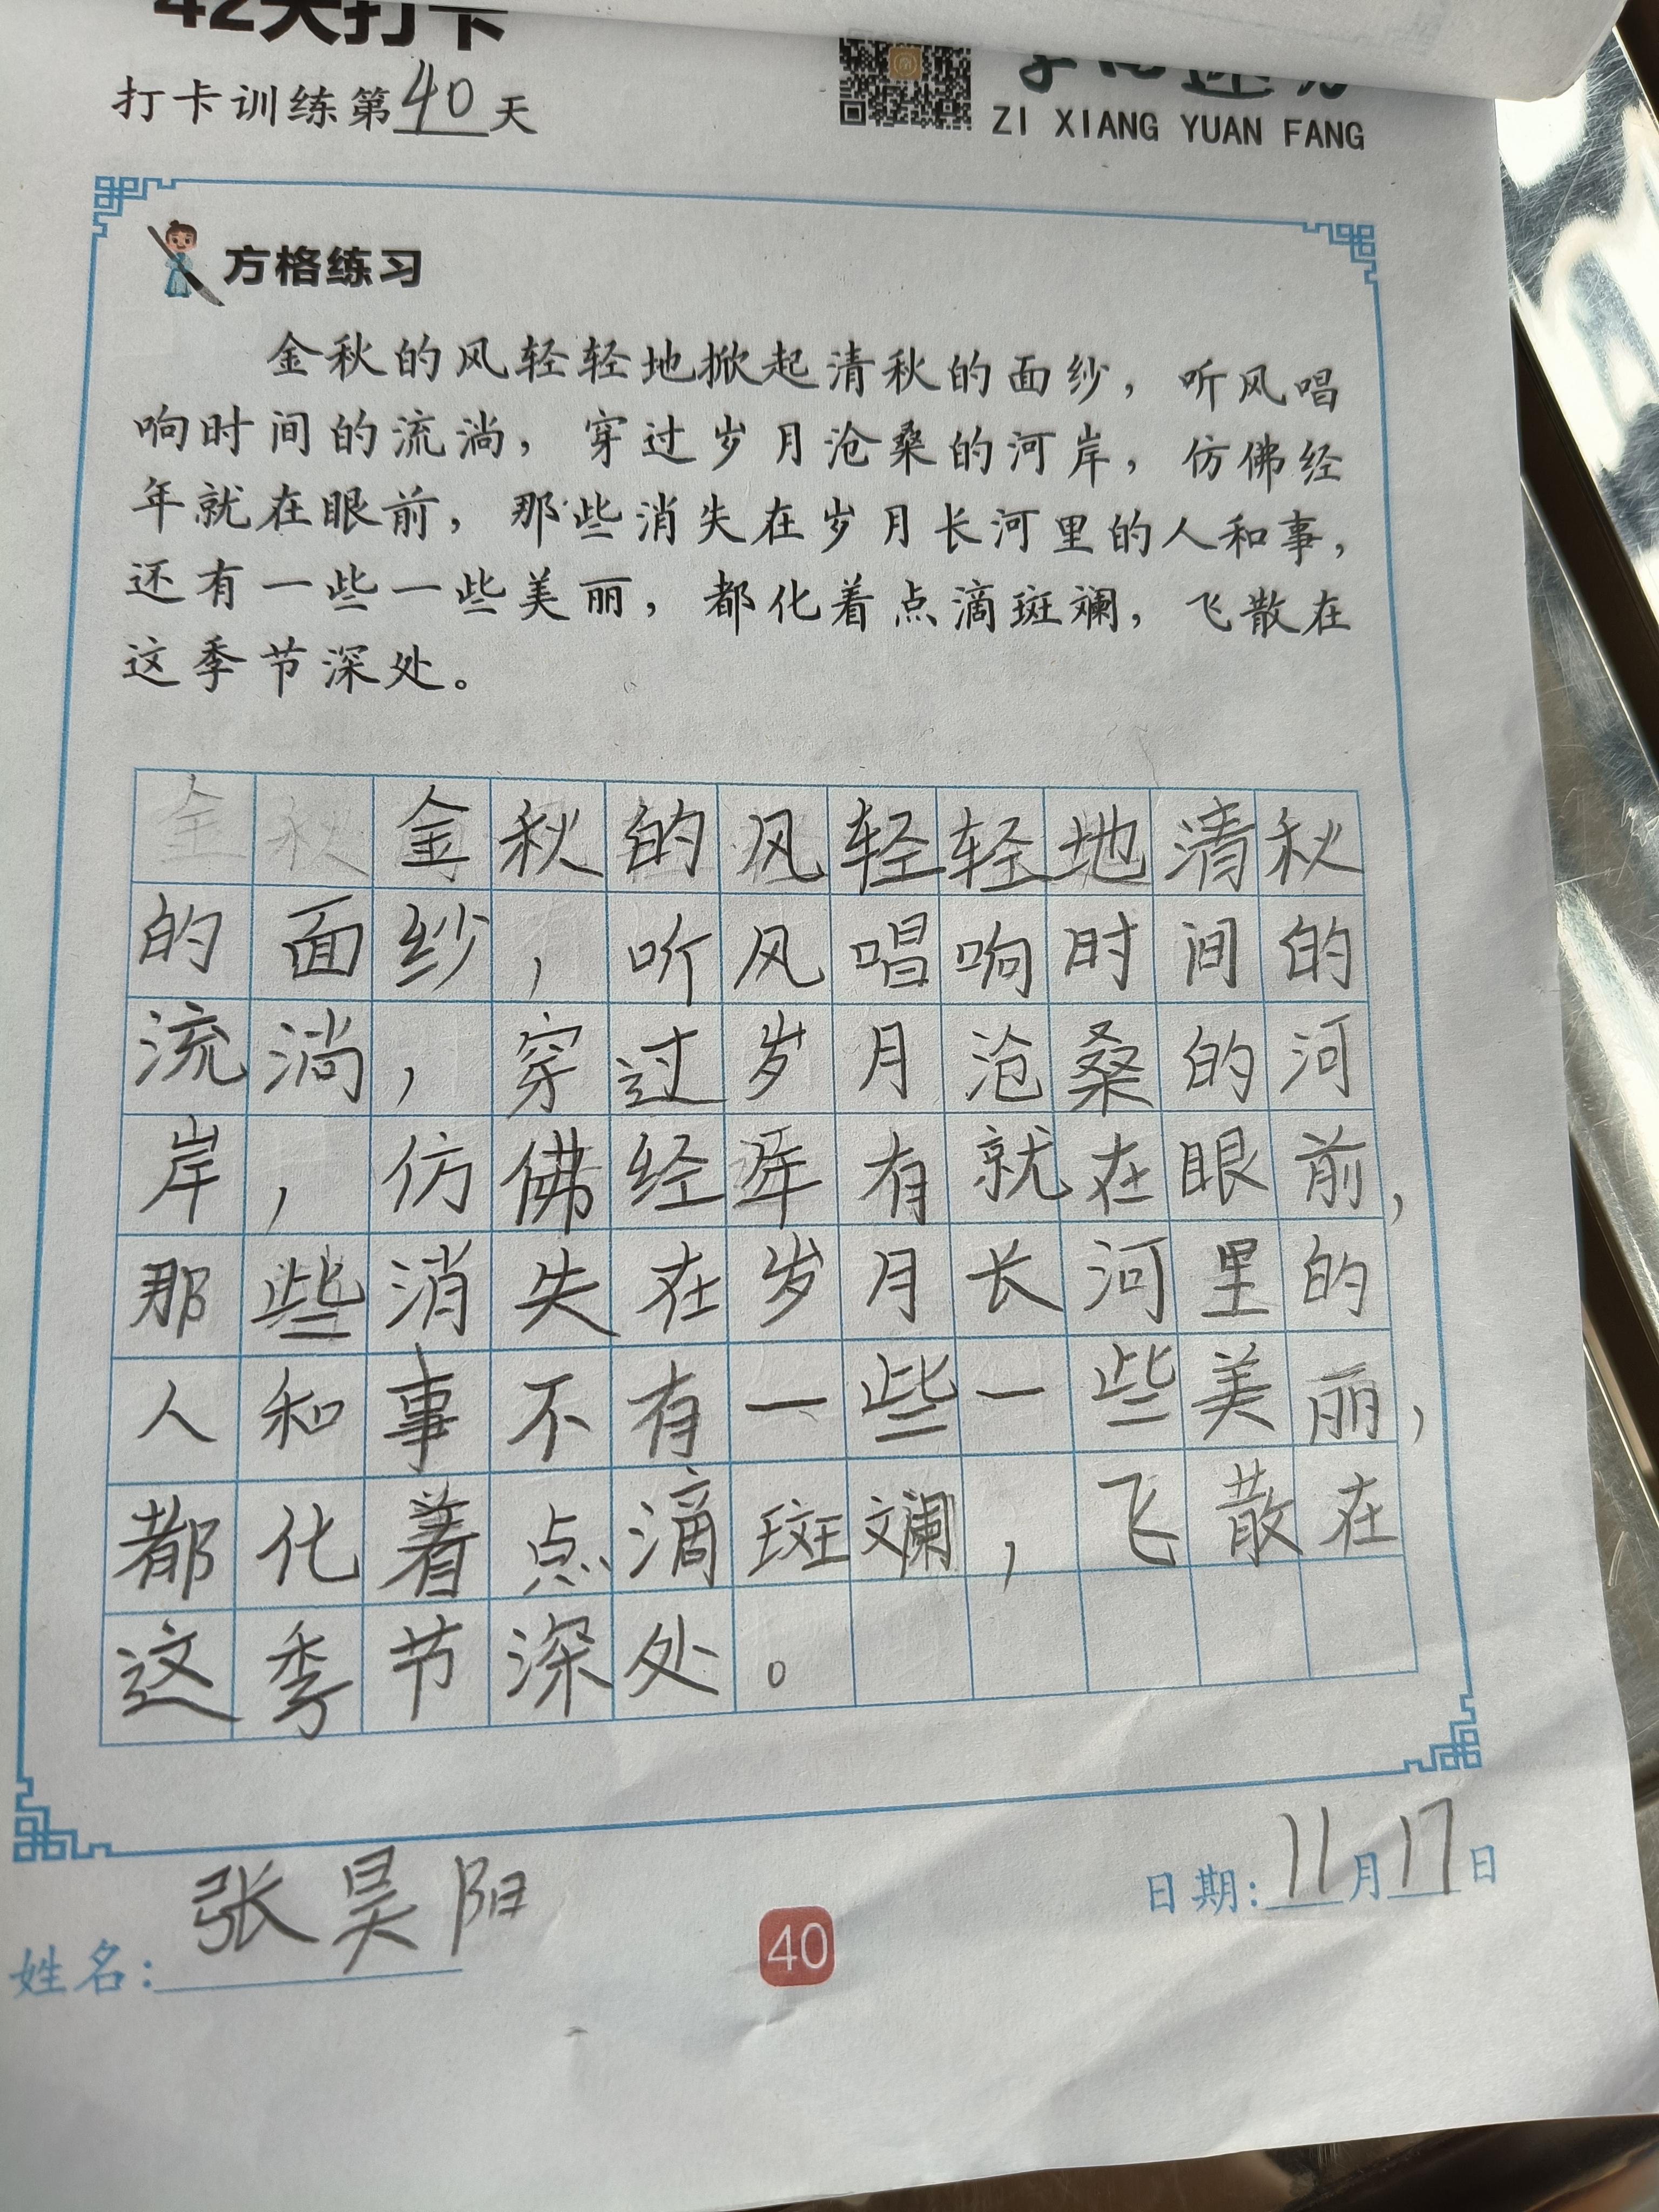 42天打卡
打卡训练第40天
ZI XIANG YUAN FANG
方格练习
金秋的风轻轻地掀起清秋的面纱，听风唱
响时间的流淌，穿过岁月沧桑的河岸，仿佛经
年就在眼前，那些消失在岁月长河里的人和事，
还有一些一些美丽，都化着点滴斑斓，飞散在
这季节深处。
金秋的风轻轻地清秋
的面纱，听风唱响时间的
流淌，穿过岁月沧桑的河
岸，仿佛经年有就在眼前，
那些消失在岁月长河里的
人和事不有一些一些美丽，
都化着点滴斑斓，飞散在
这季节深处。
姓名：张昊阳
40
日期：11月17日